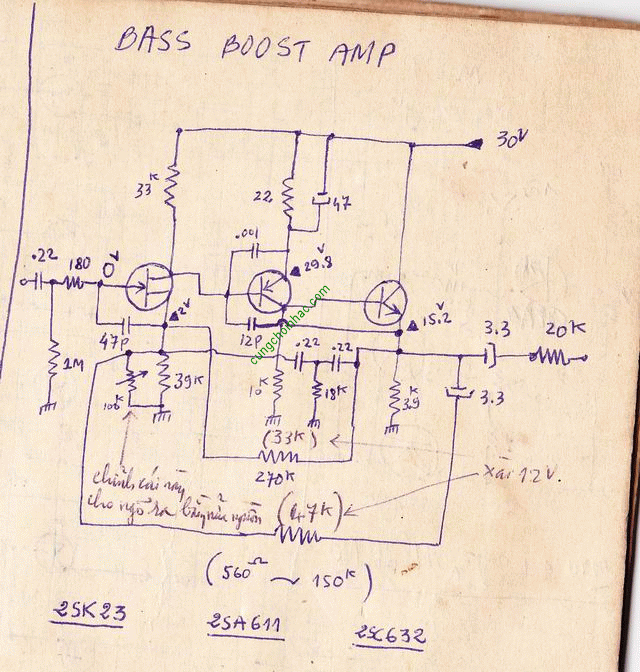 BASS BOOST AMP
30V
33K
22
47
.001
.22
180
0V
29.8V
2V
15.2V
47P
12P
3.3
20K
.22
.22
1M
39K
100K
10K
18K
3.9K
3.3
(33K)
270K
xài 12V.
chỉnh cái này
cho ngõ ra bằng nửa nguồn
(4,7K)
(560Ω ~ 150K)
2SK23
2SA611
2SC632
cungchoinhac.com